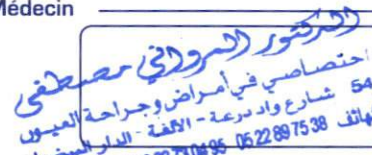 Médecin
الدكتور المرواني مصطفى
احتصاصي في أمراض وجراحة العيون
54 شارع واد درعة - الألفة - الدار البيضاء
الهاتف 0522897538